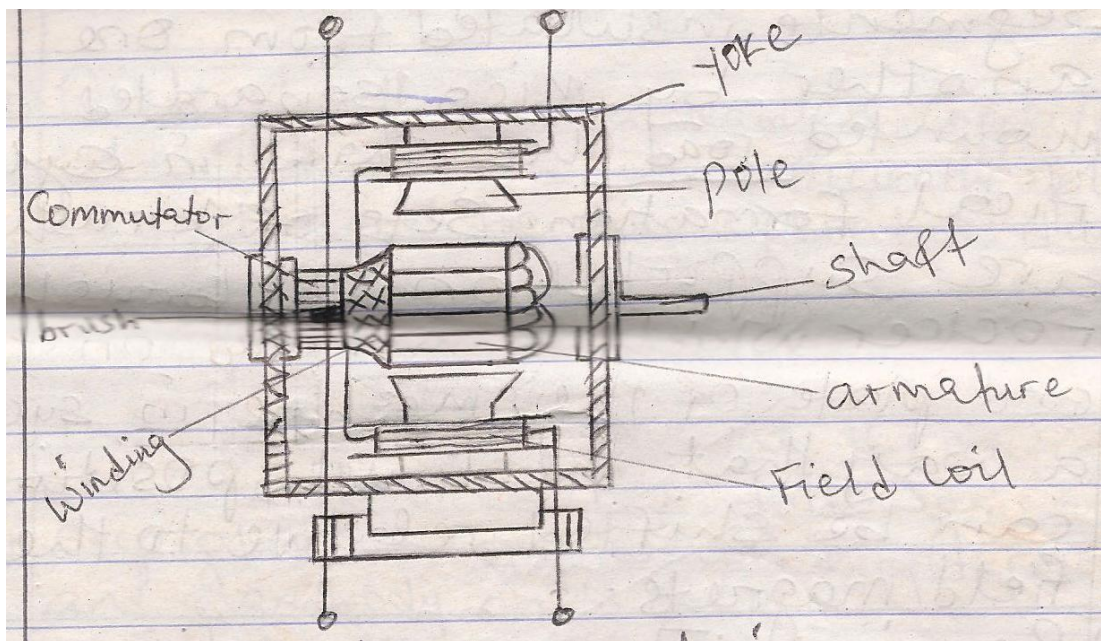 yoke
pole
Commutator
shaft
brush
armature
Winding
Field Coil